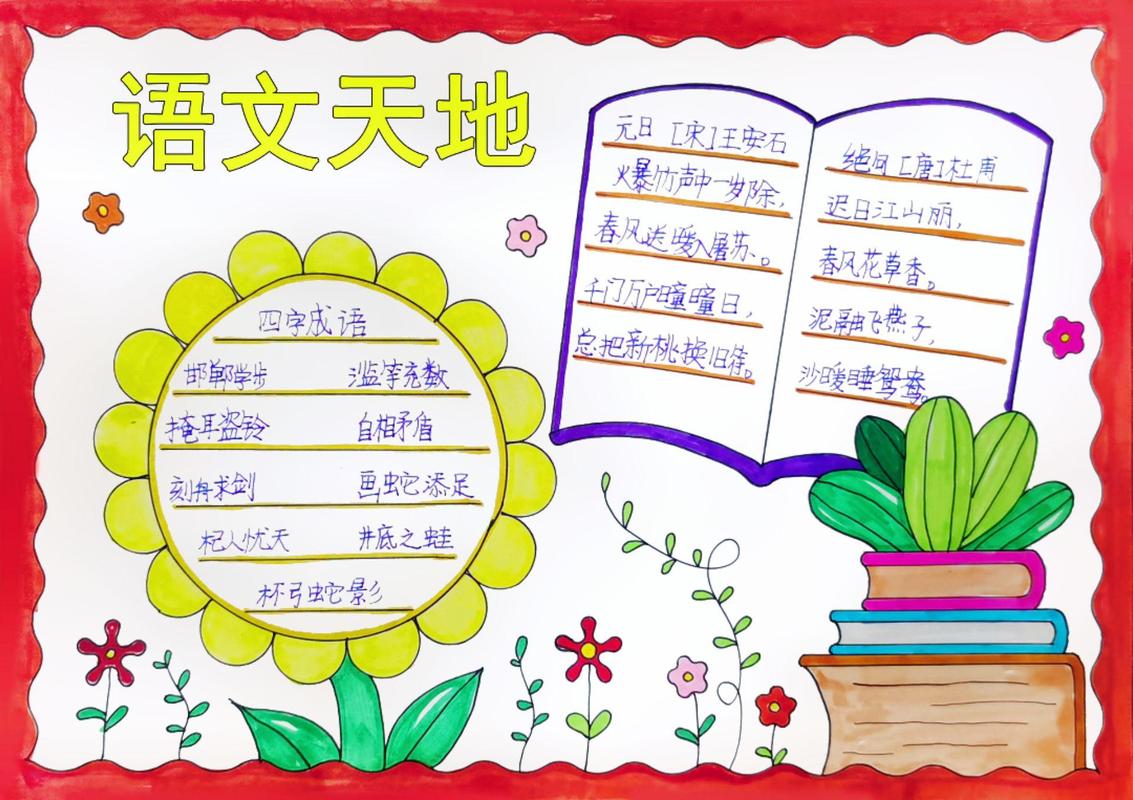 语文天地
元日 [宋]王安石
爆竹声中一岁除,
春风送暖入屠苏。
千门万户曈曈日,
总把新桃换旧符。
绝句 [唐]杜甫
迟日江山丽,
春风花草香。
泥融飞燕子,
沙暖睡鸳鸯。
四字成语
邯郸学步 滥竽充数
掩耳盗铃 自相矛盾
刻舟求剑 画蛇添足
杞人忧天 井底之蛙
杯弓蛇影